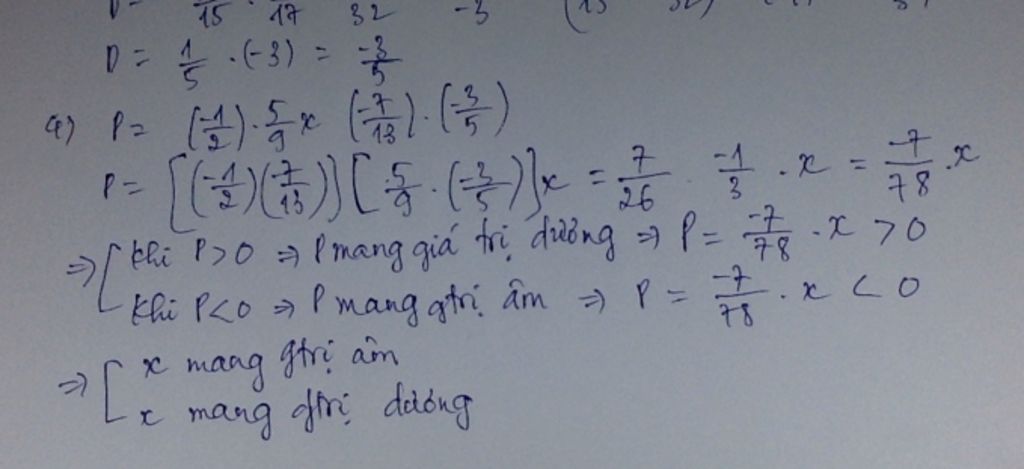 15 17 32 -3
D = 1/5 . (-3) = -3/5
4) P = (-1/2) . 5/9 x (-7/13) . (-3/5)
P = [(-1/2)(-7/13)] [5/9 . (-3/5)] x = 7/26 . -1/3 . x = -7/78 . x
⇒ [ Khi P > 0 ⇒ P mang giá trị dương ⇒ P = -7/78 . x > 0
Khi P < 0 ⇒ P mang gtrị âm ⇒ P = -7/78 . x < 0
⇒ [ x mang gtrị âm
x mang gtrị dương